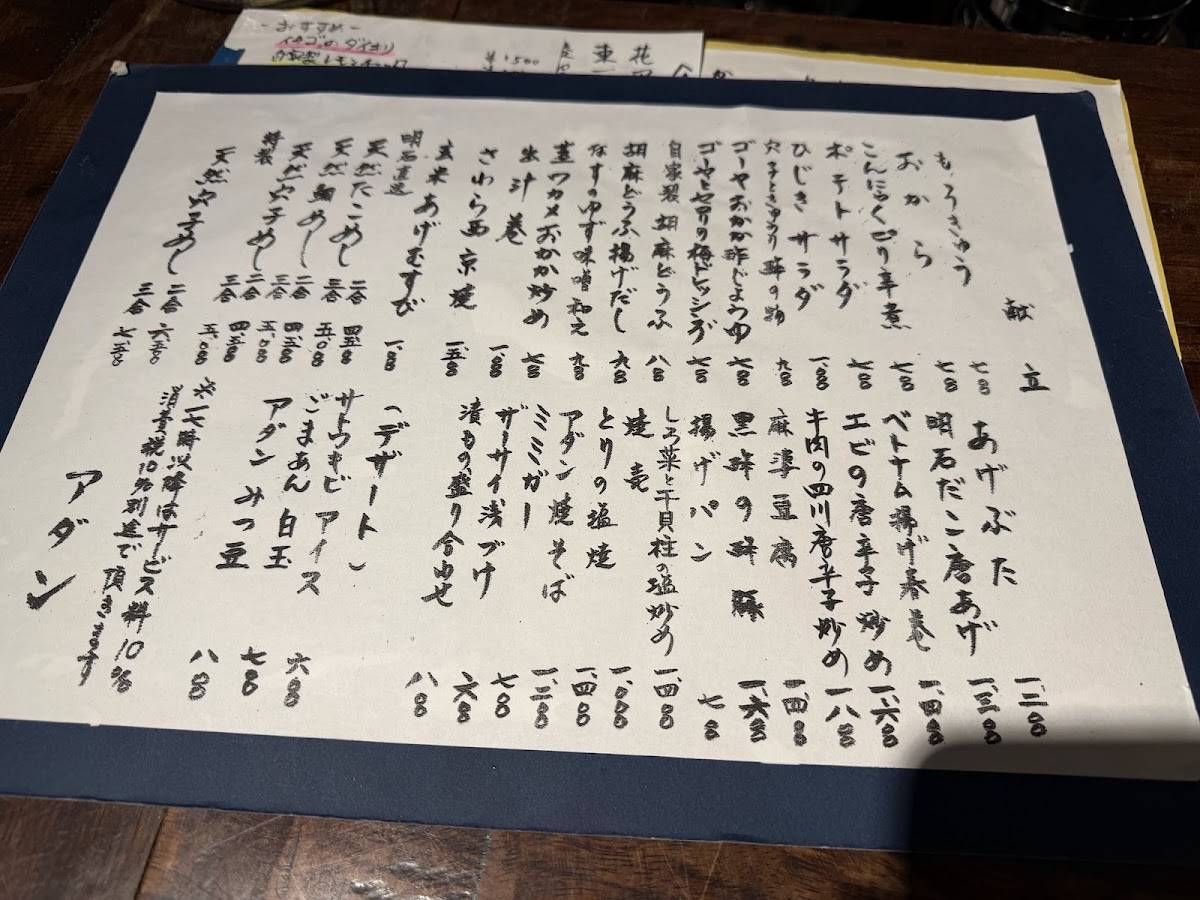 献立
もろきゅう 七〇〇
おから 七〇〇
こんにゃくピリ辛煮 七〇〇
ポテトサラダ 七〇〇
ひじきサラダ 一、〇〇〇
穴子ときゅうり酢の物 九〇〇
ゴーヤおかか酢じょうゆ 七〇〇
ゴーヤとセロリの梅ドレッシング 七〇〇
自家製 胡麻どうふ 八〇〇
胡麻どうふ揚げだし 九〇〇
なすのゆず味噌和え 九〇〇
茎ワカメおかか炒め 七〇〇
出汁巻 一、〇〇〇
さわら西京焼 一、五〇〇
玄米あげむすび 一、〇〇〇
明石直送
天然たこめし 二合 四、五〇〇
三合 五、〇〇〇
天然鯛めし 二合 四、五〇〇
三合 五、〇〇〇
天然穴子めし 二合 四、五〇〇
三合 五、〇〇〇
特製
天然穴子めし 二合 六、五〇〇
三合 七、五〇〇
あげぶた 一、三〇〇
明石だこ唐あげ 一、三〇〇
ベトナム揚げ春巻 一、四〇〇
エビの唐辛子炒め 一、六〇〇
牛肉の四川唐辛子炒め 一、八〇〇
麻婆豆腐 一、四〇〇
黒酢の酢豚 一、六〇〇
揚げパン 七〇〇
しろ菜と干貝柱の塩炒め 一、四〇〇
焼売 一、〇〇〇
とりの塩焼 一、四〇〇
アダン焼そば 一、二〇〇
ミミガー 七〇〇
ザーサイ浅づけ 六〇〇
漬もの盛り合わせ 八〇〇
(デザート)
サトウキビアイス 六〇〇
ごまあん白玉 七〇〇
アダンみつ豆 八〇〇
※一七時以降はサービス料10%
消費税10%別途で頂きます
アダン
-おすすめ-
¥1500